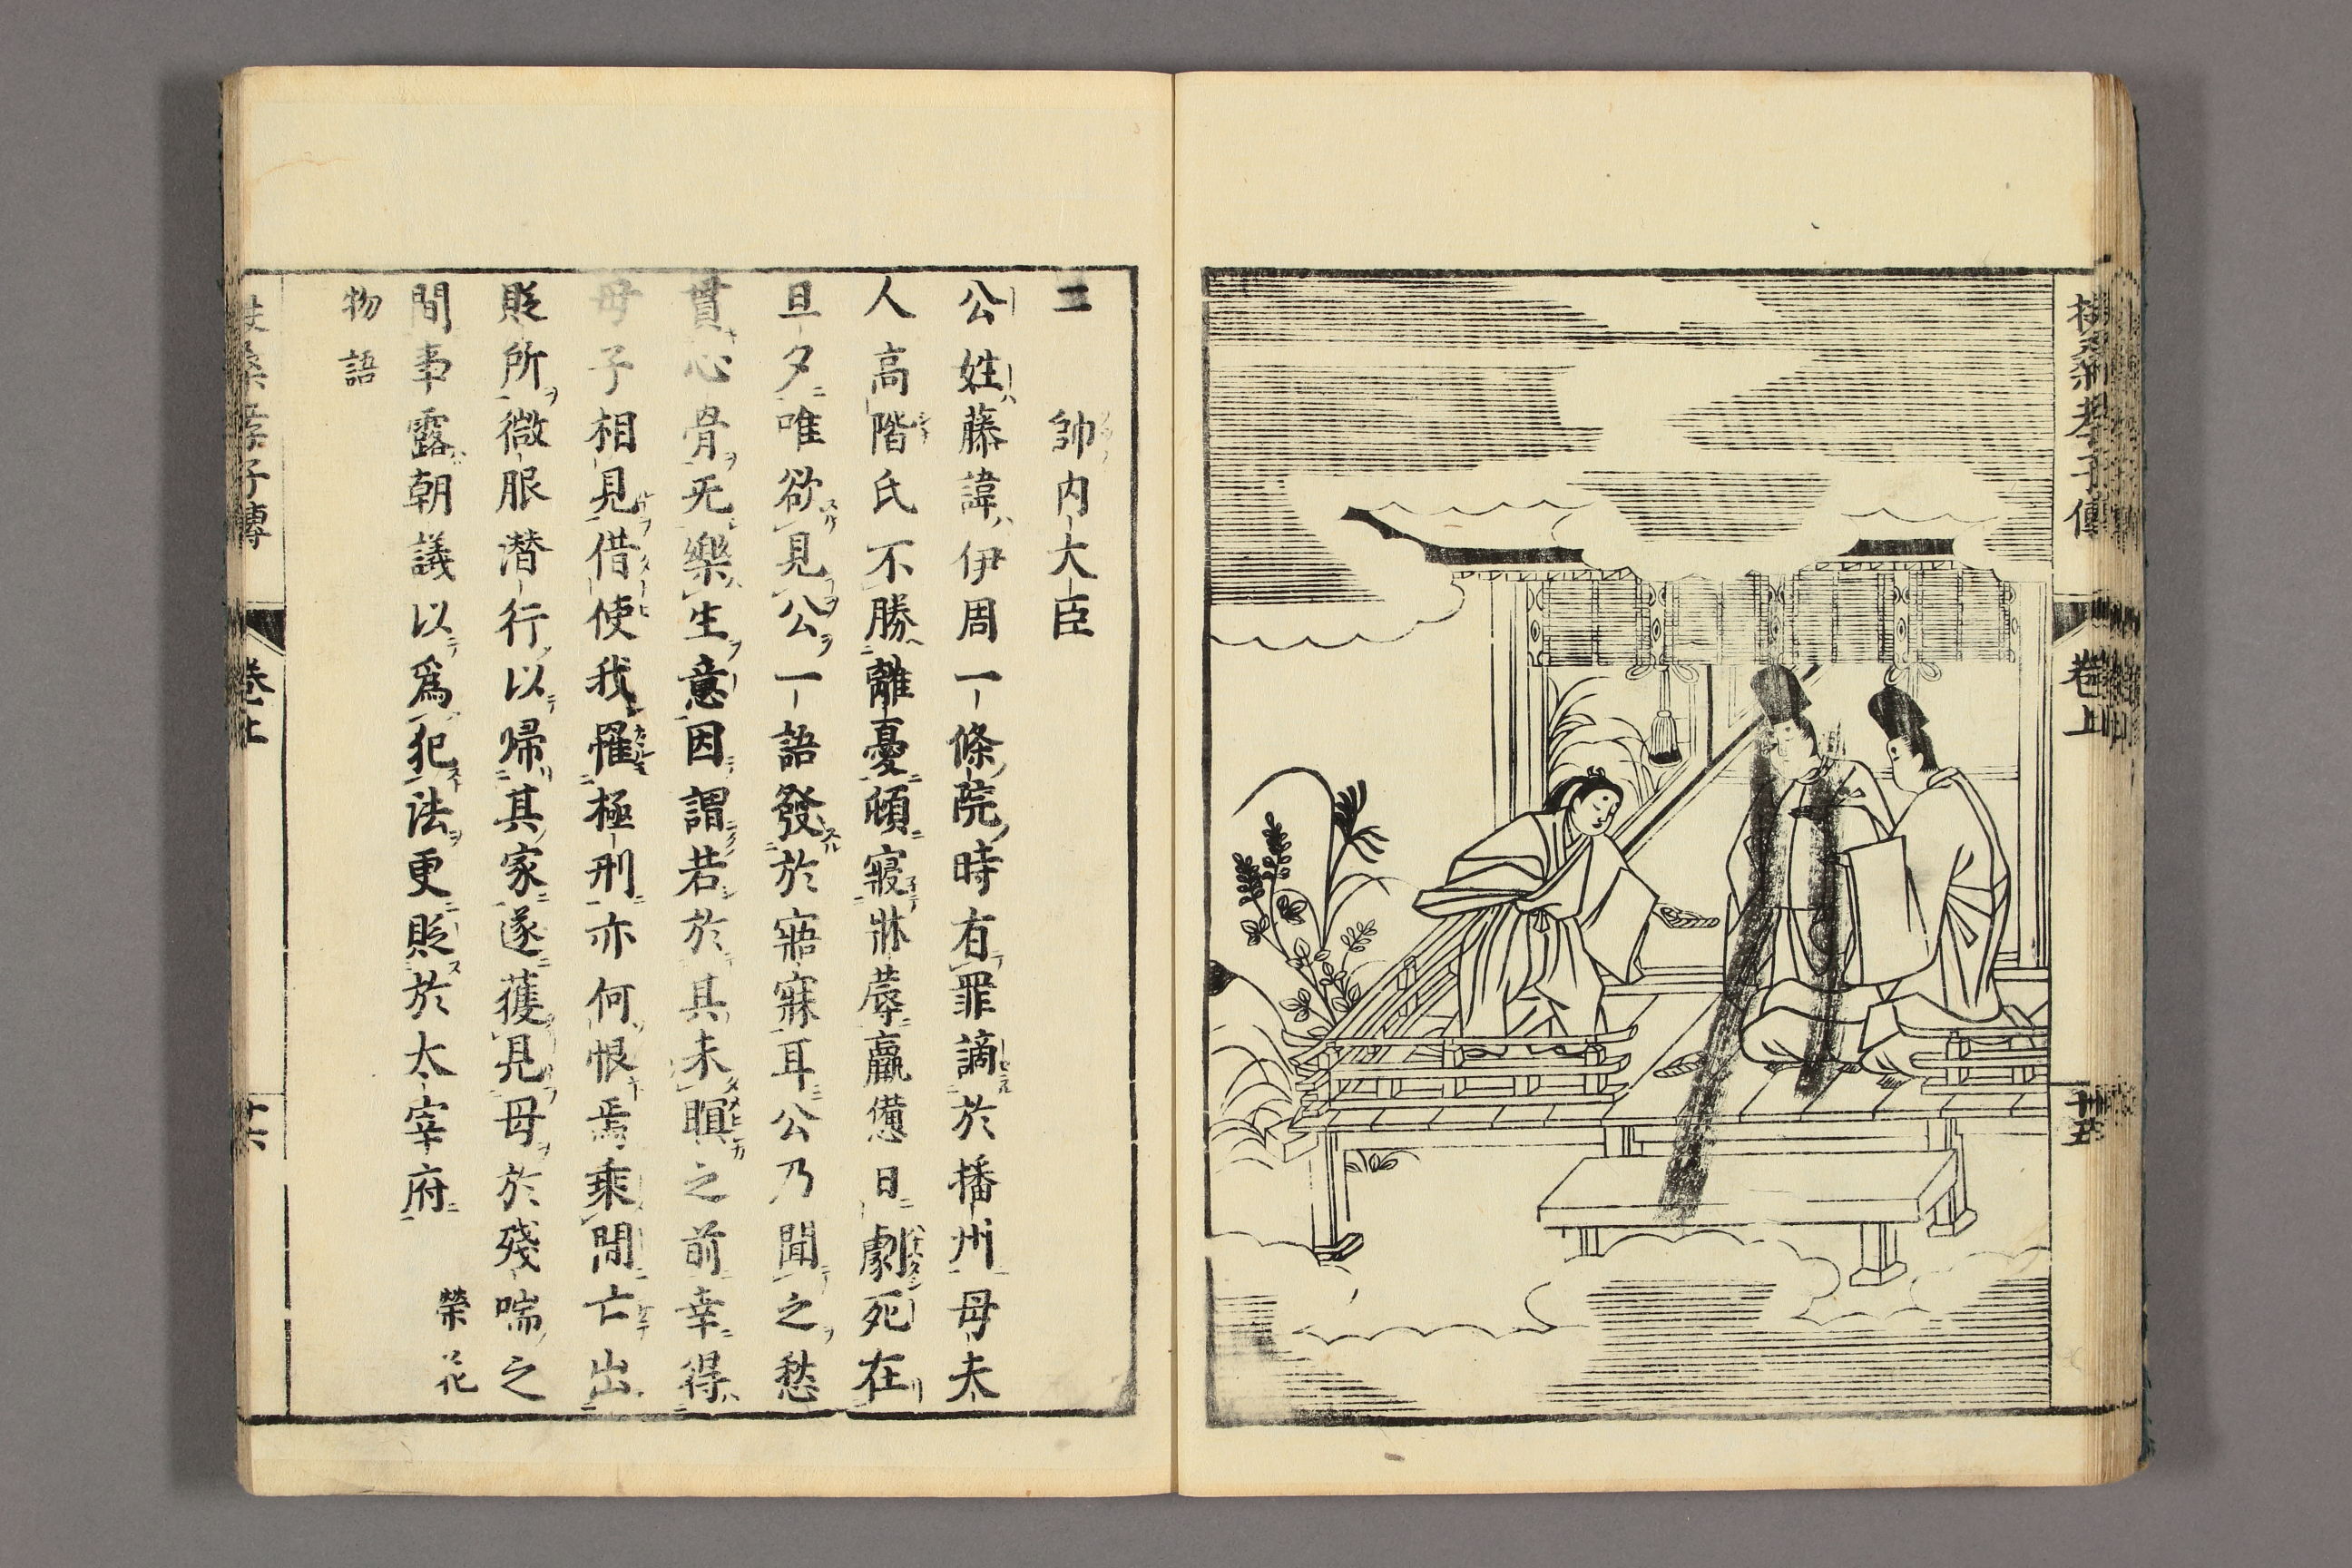 扶桑孝子傳
卷上
廿五
二 帥内大臣
公姓藤諱伊周一條院時有罪謫於播州母夫
人高階氏不勝離憂頓寢牀蓐羸憊日劇死在
旦夕唯欲見公一語發於寤寐耳公乃聞之愁
貫心骨无樂生意因謂若於其未瞑之前幸得
母子相見借使我罹極刑亦何恨焉乘間亡出
貶所微服潜行以帰其家遂獲見母於殘喘之
間事露朝議以爲犯法更貶於太宰府 榮花
物語
扶桑孝子傳
卷上
廿六